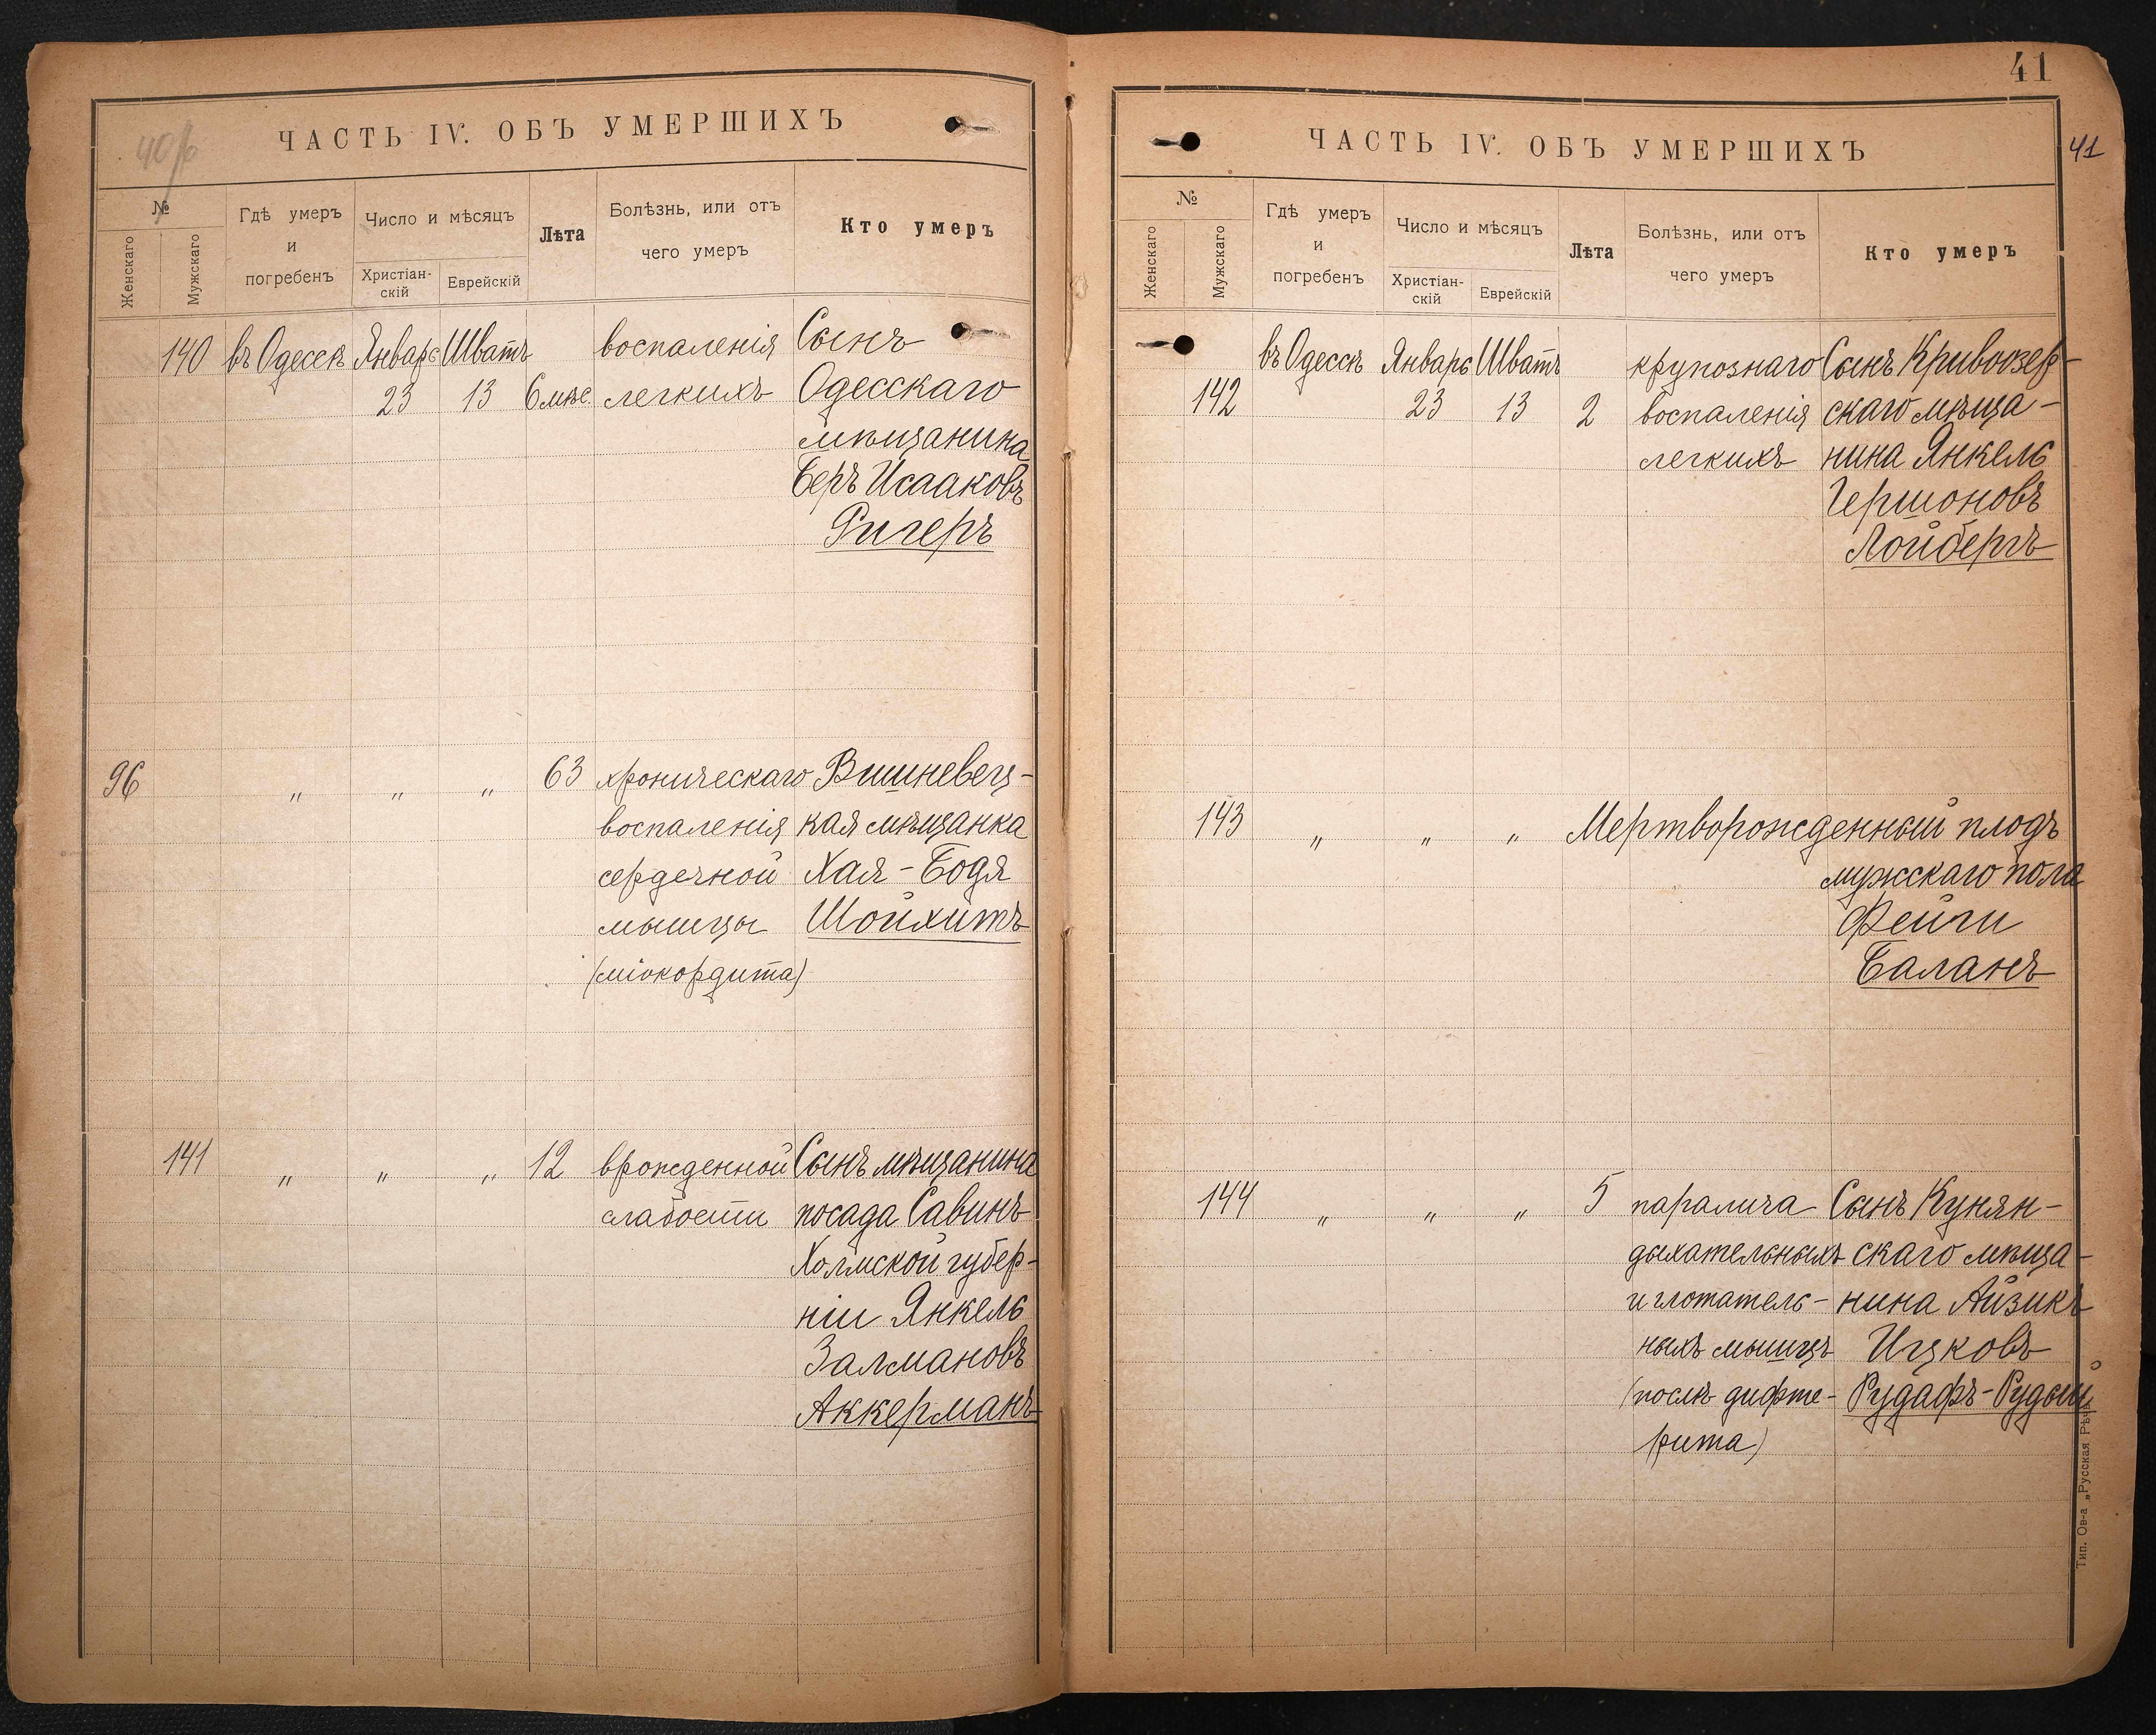 40 об
ЧАСТЬ IV. ОБЪ УМЕРШИХЪ
№
Женскаго
Мужскаго
Гдѣ умеръ
и
погребенъ
Число и мѣсяцъ
Христіан-
скій
Еврейскій
Лѣта
Болѣзнь, или отъ
чего умеръ
Кто умеръ
140 въ Одессѣ Январь Шватъ воспаленія Сынъ
23 13 6 мѣс. легкихъ Одесскаго
мѣщанина
Беръ Исааковъ
Ригеръ
96 " " " 63 хроническаго Вишневец-
воспаленія кая мѣщанка
сердечной Хая-Бодя
мышцы Шойхитъ
(міокордита)
141 " " " 12 врожденной Сынъ мѣщанина
слабости посада Савинъ
Холмской губер-
ніи Янкель
Залмановъ
Аккерманъ
41
41
ЧАСТЬ IV. ОБЪ УМЕРШИХЪ
№
Женскаго
Мужскаго
Гдѣ умеръ
и
погребенъ
Число и мѣсяцъ
Христіан-
скій
Еврейскій
Лѣта
Болѣзнь, или отъ
чего умеръ
Кто умеръ
въ Одессѣ Январь Шватъ крупознаго Сынъ Кривоозер-
142 23 13 2 воспаленія скаго мѣща-
легкихъ нина Янкель
Гершоновъ
Лойбергъ
143 " " " Мертворожденный плодъ
мужскаго пола
Фейги
Баланъ
144 " " " 5 паралича Сынъ Кунян-
дыхательныхъ скаго мѣща-
и глотатель- нина Айзикъ
ныхъ мышцъ Ицковъ
(послѣ дифте- Рудафъ-Рудый
рита)
Тип. Ов-а „Русская Рѣчь"